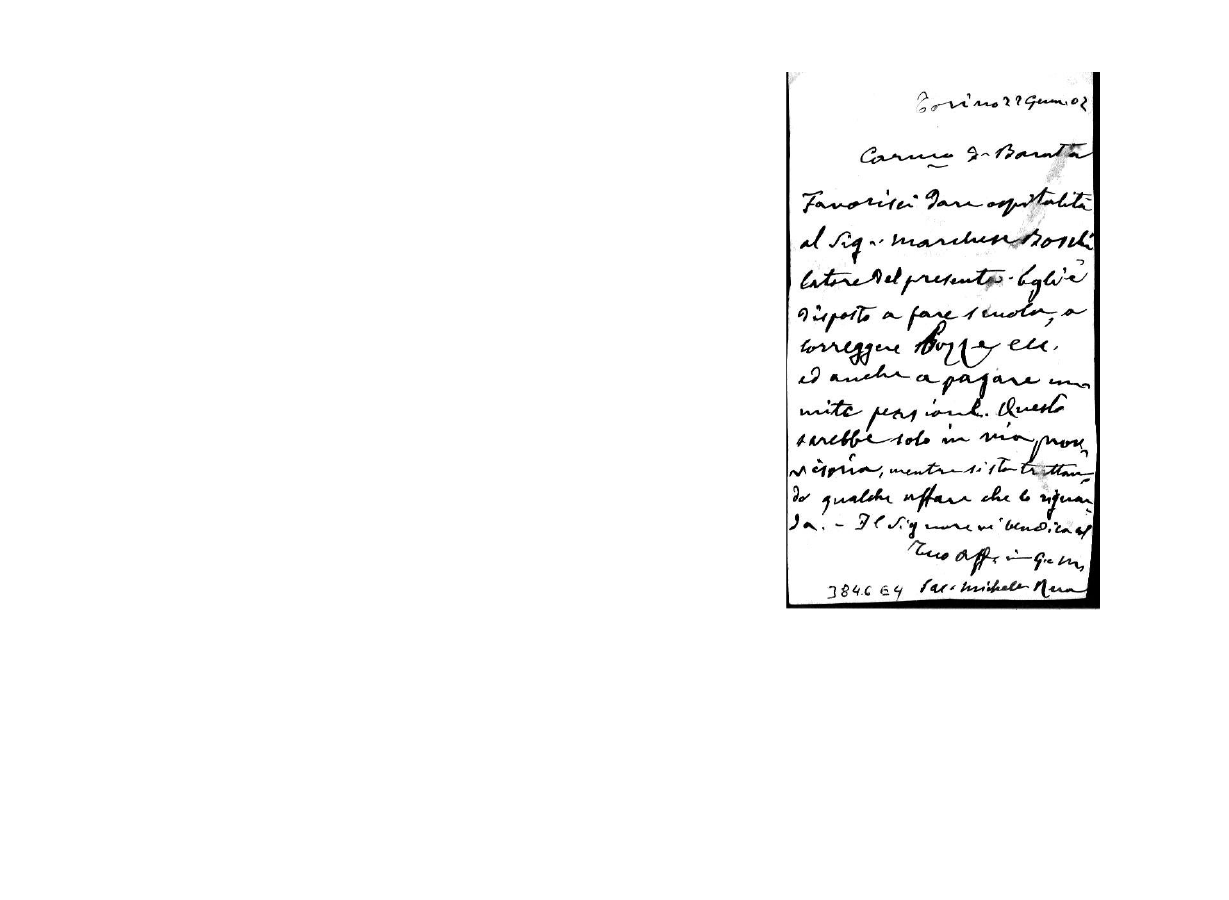 Torino 22 Genn. 02
Cariss.o D. Baratta
Favorisci dare ospitalità
al Sig.r Marchese Boschi
latore del presente. Egli è
disposto a fare scuola, a
correggere bozze ecc.
ed anche a pagare una
mite pensione. Questo
sarebbe solo in via prov-
visoria, mentre si sta trattan-
do qualche affare che lo riguar-
da. - Il Signore vi benedica ed
Tuo aff. in G. e M.
Sac. Michele Rua
3846 E4